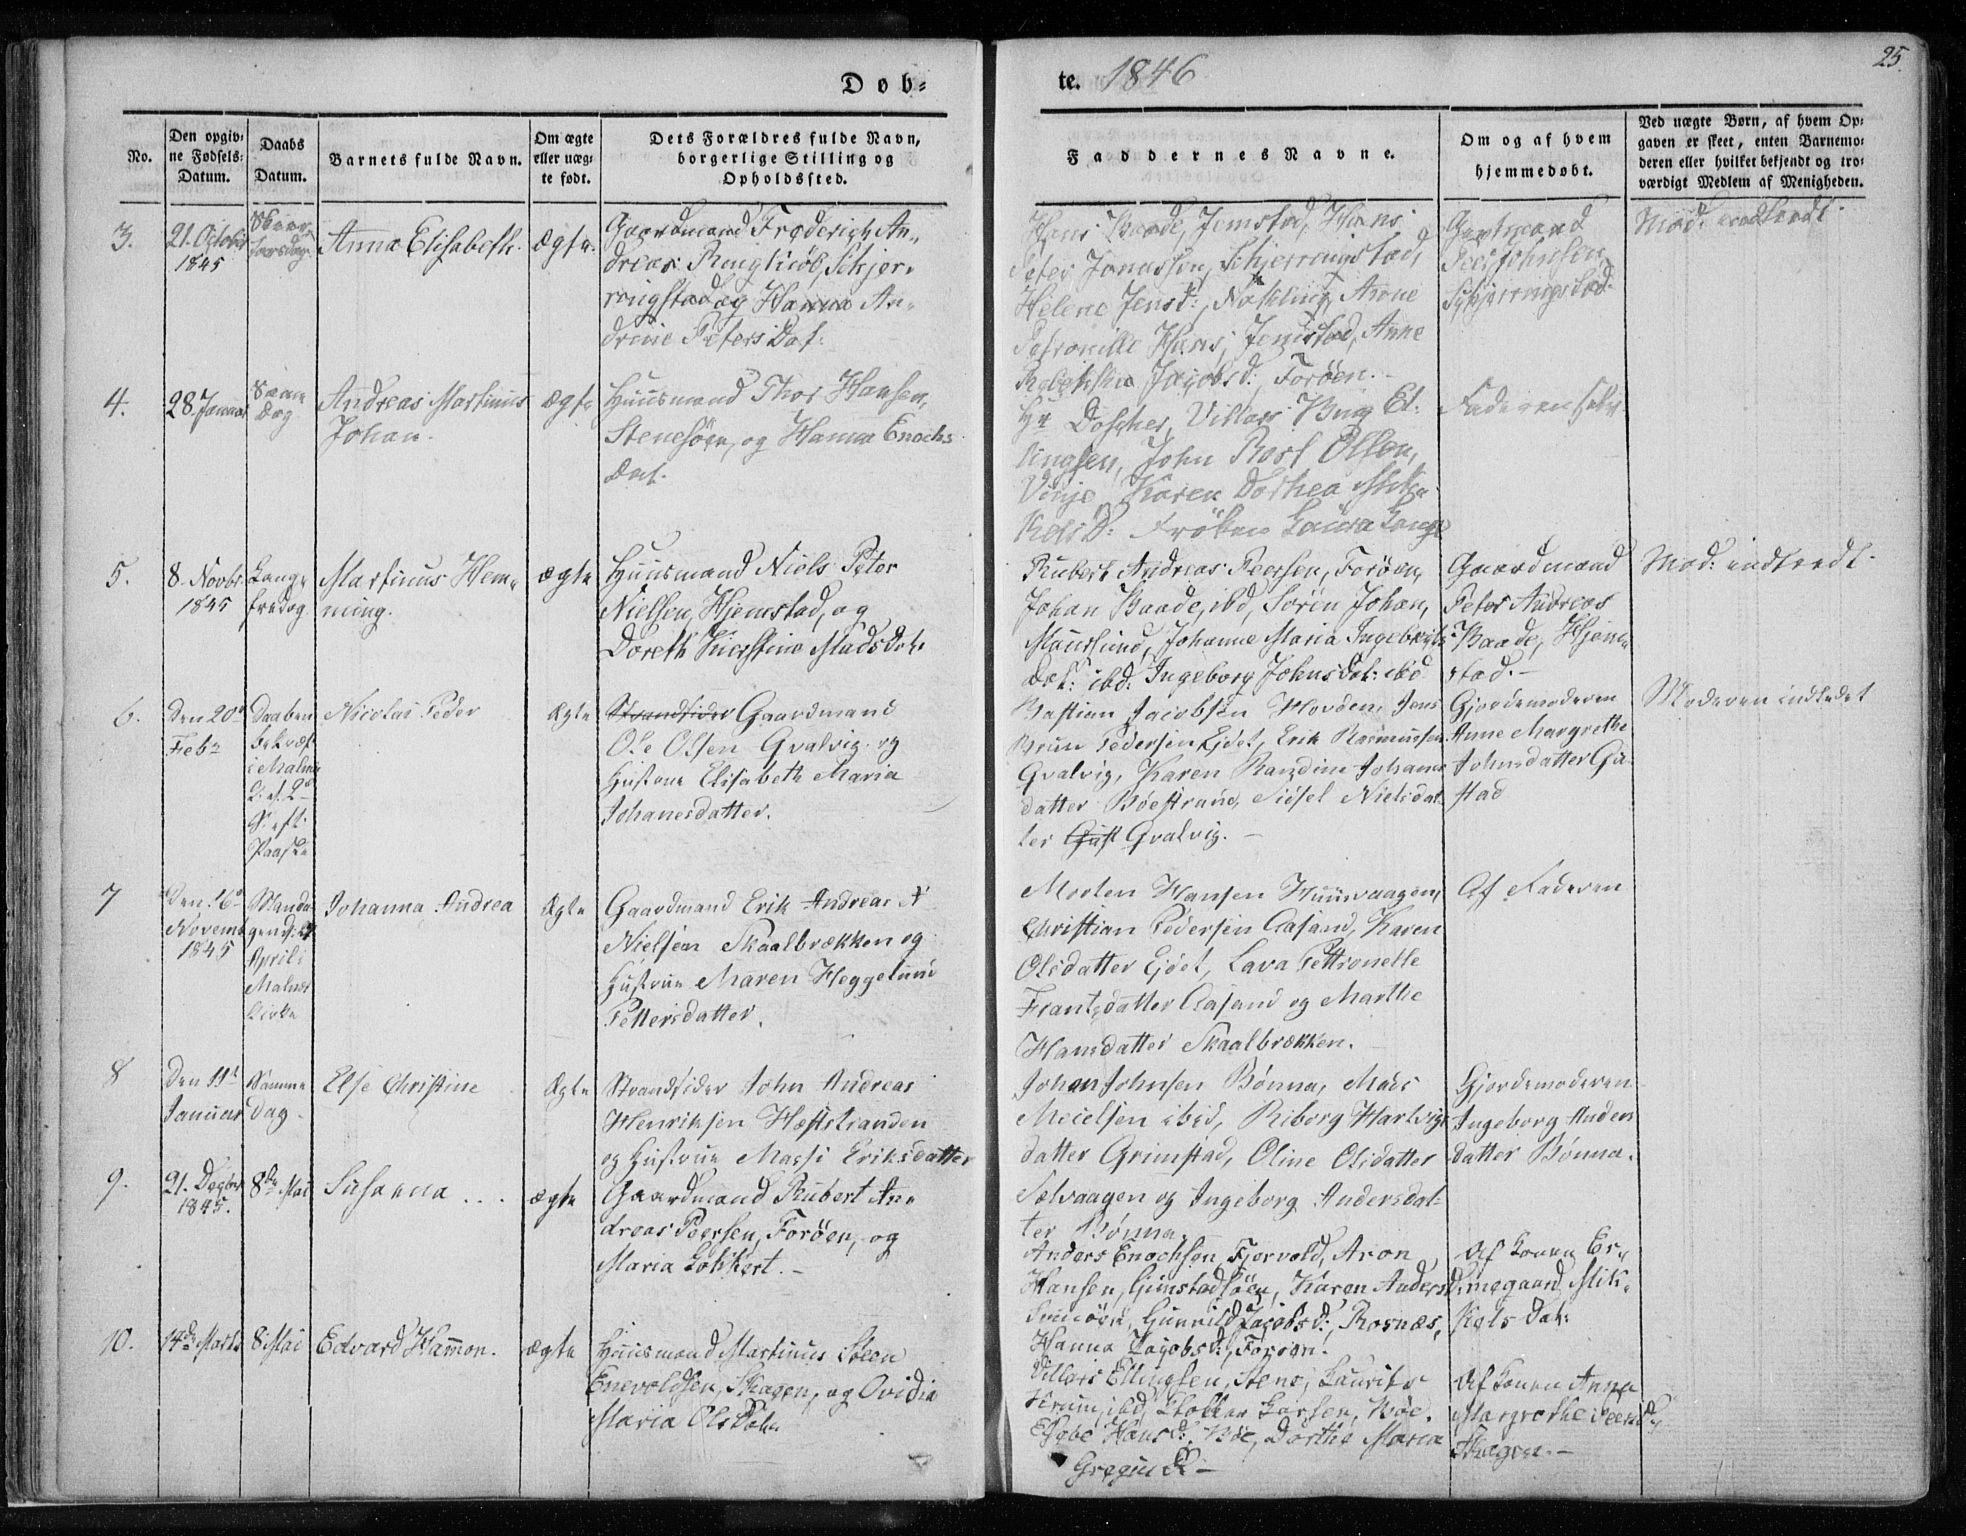 Døb-
te. 1846
25.
No.
Den opgiv-
ne Fødsels-
Datum.
Daabs
Datum.
Barnets fulde Navn.
Om ægte
eller uæg-
te født.
Dets Forældres fulde Navn,
borgerlige Stilling og
Opholdssted.
Faddernes Navne.
Om og af hvem
hjemmedøbt.
Ved uægte Børn, af hvem Op-
gaven er skeet, enten Barnemo-
deren eller hvilket bekjendt og tro-
værdigt Medlem af Menigheden.
3.
21. Octobr
1845
Skjær-
torsdag
Anna Elisabeth.
Ægte.
Gaardmand Frederich An-
dreas Ringkiøb, Schjer-
ringstad og Hanna An-
drine Peters Dat.
Hans Baade, Jemstad, Hans
Peter Jonassen, Schjerringstad,
Helene Jensd:, Anne
Petronille Hans, Jemstad, Anne
Rebekka Jacobsd:, Forøen.
Gaardmand
Peer Johnsen
Schjerringstad.
Mod: indledt.
4.
28. Januar
Samme
Dag
Andreas Martinus
Johan.
ægte
Huusmand Thor Hansen,
Stenesøen, og Hanna Enochs
Dat.
Hr Doscher, Villars Bug El-
lingsen, John Rost Olsen,
Vinje, Karen Dorthea Mik-
kels D: Frøken Laura Lange
Faderen selv.
5.
8. Novbr.
1845
Lang-
fredag
Martinus Hem-
ming.
ægte
Huusmand Niels Peter
Nielsen, Hjemstad, og
Doreth Kierstine Mads Dat.
Rubert Andreas Peersen, Forøen,
Johan Baade, ibd, Søren Johan,
Maurlund, Johanne Maria Ingebrigts
Dat: ibd: Ingeborg Johns Dat: ibd
Gaardmand
Peter Andreas
Baade, Hjem-
stad.-
Mod: indledt.
6.
Den 20de
Febr
Daaben
bekræf.
i Malnæs
K. 2d
S. eft.
Paaske
Nicolai Peder
Ægte
Strandsider Gaardmand
Ole Olsen Qvalvig og
Hustrue Elisabeth Maria
Johanesdatter.
Bastian Jacobsen Hovden, Jens
Bruun Pedersen Ejdet, Erik Rasmussen
Qvalvig, Karen Randine Johanne
datter Bøestrand, Sidsel Nielsdat-
ter Gust Qvalvig.-
Gjordemoderen
Anne Margrethe
Johnsdatter Gi-
stad
Moderen indledet
7
Den 16de
Novemb
1845
Manda-
gen d:
April i
Malnæs
Kirke
Johanna Andrea
Ægte
Gaardmand Erik Andreas N
Nielsen Skaalbrækken og
Hustrue Maren Heggelund
Pettersdatter.
Morten Hansen Huusvaagen,
Christian Pedersen Aasand, Karen
Olsdatter Ejdet, Lava Pettronelle
Frantzdatter Aasand og Marthe
Hansdatter Skaalbrækken.
Af Faderen
8
Den 11te
Januar
Samme
Dag.
Else Christine
Ægte
Strandsider John Andreas
Henriksen Hæststranden
og Hustrue Massi Eriksdatter
Johan Johnsen Bønna, Mads
Meielsen ibid, Riborg Hartvigs
datter Grimstad, Oline Olsdatter
Sælvaagen og Ingeborg Andersdat-
ter Bønna.
Gjordemoderen
Ingeborg Anders
datter Bønna.
9.
21. Decbr
1845.
8de Mai
Susanna . . .
ægte
Gaardmand Rubert An-
dreas Peersen, Forøen, og
Maria Lokkert.-
Anders Enochsen, Fjervold, Aron
Hansen, Gimstadsøen, Karen Anders D:
Gunnild Jacobsd:, Rosnæs,
Hanna Jacobsd:, Forøen.
Af Konen Er-
megaard Mik-
kels Dat:
10.
14de Marts
8 Mai
Edvard Hammon.
ægte
Huusmand Martinus Steen
Enevoldsen, Skagen, og Ovidia
Maria Ols Dat.
Villars Ellingsen, Stene, Laurits
Krum, ibd, Larsen, Bøe,
Hansd: Bøe, Dorthe Maria
Gregus D:-
Af Konen Anne
Margrethe Peers D:
Skagen.-